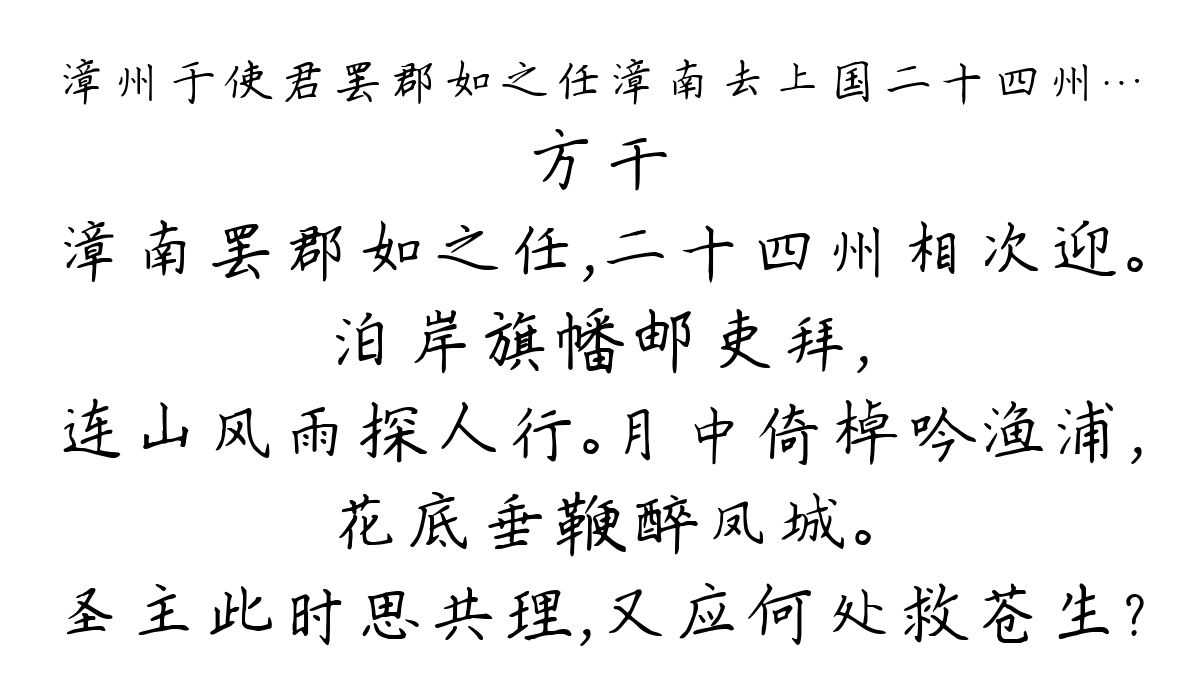 漳州于使君罢郡如之任漳南去上国二十四州…
方干
漳南罢郡如之任,二十四州相次迎。
泊岸旗幡邮吏拜,
连山风雨探人行。月中倚棹吟渔浦,
花底垂鞭醉凤城。
圣主此时思共理,又应何处救苍生?